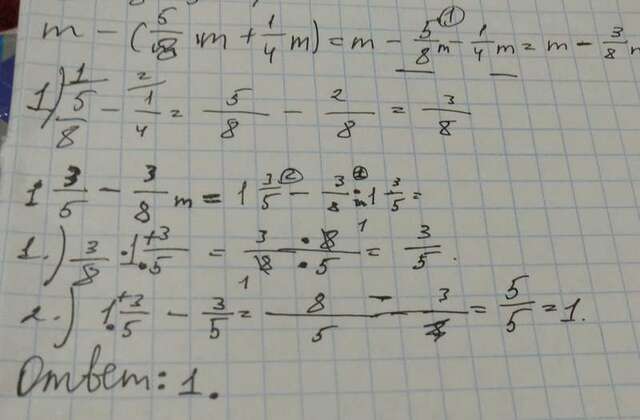 m - (5/8 m + 1/4 m) = m - 5/8 m - 1/4 m = m - 3/8 m
1) 5/8 - 1/4 = 5/8 - 2/8 = 3/8
1 3/5 - 3/8 m = 1 3/5 - 3/8 · 1 3/5 =
1.) 3/8 · 1 3/5 = 3 · 8 / 8 · 5 = 3/5.
2.) 1 3/5 - 3/5 = 8 - 3 / 5 = 5/5 = 1.
Ответ: 1.